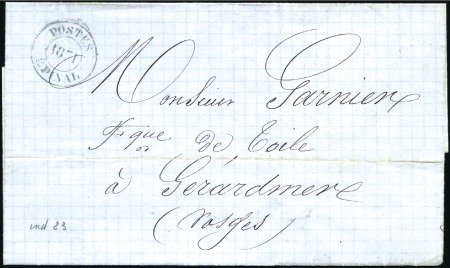 POSTES
1871
EPINAL
Monsieur Garnier
Fque de Toile
à Gérardmer
(Vosges)
ind 23